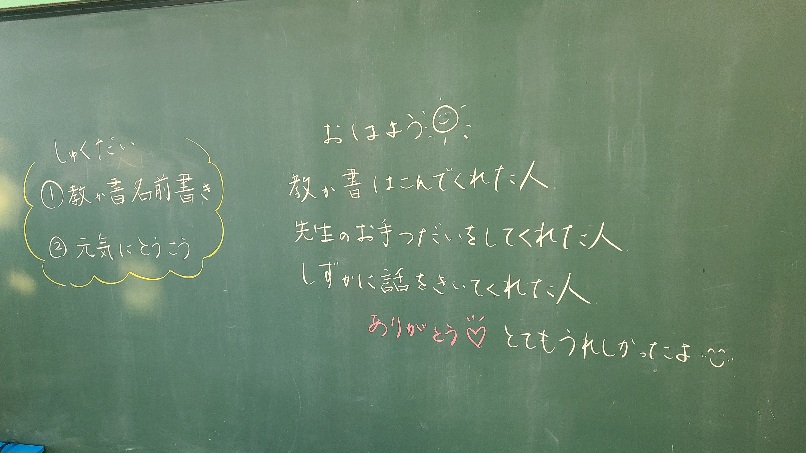 しゅくだい
①教か書名前書き
②元気にとうこう
おはよう
教か書はこんでくれた人
先生のお手つだいをしてくれた人
しずかに話をきいてくれた人
ありがとう♡とてもうれしかったよ